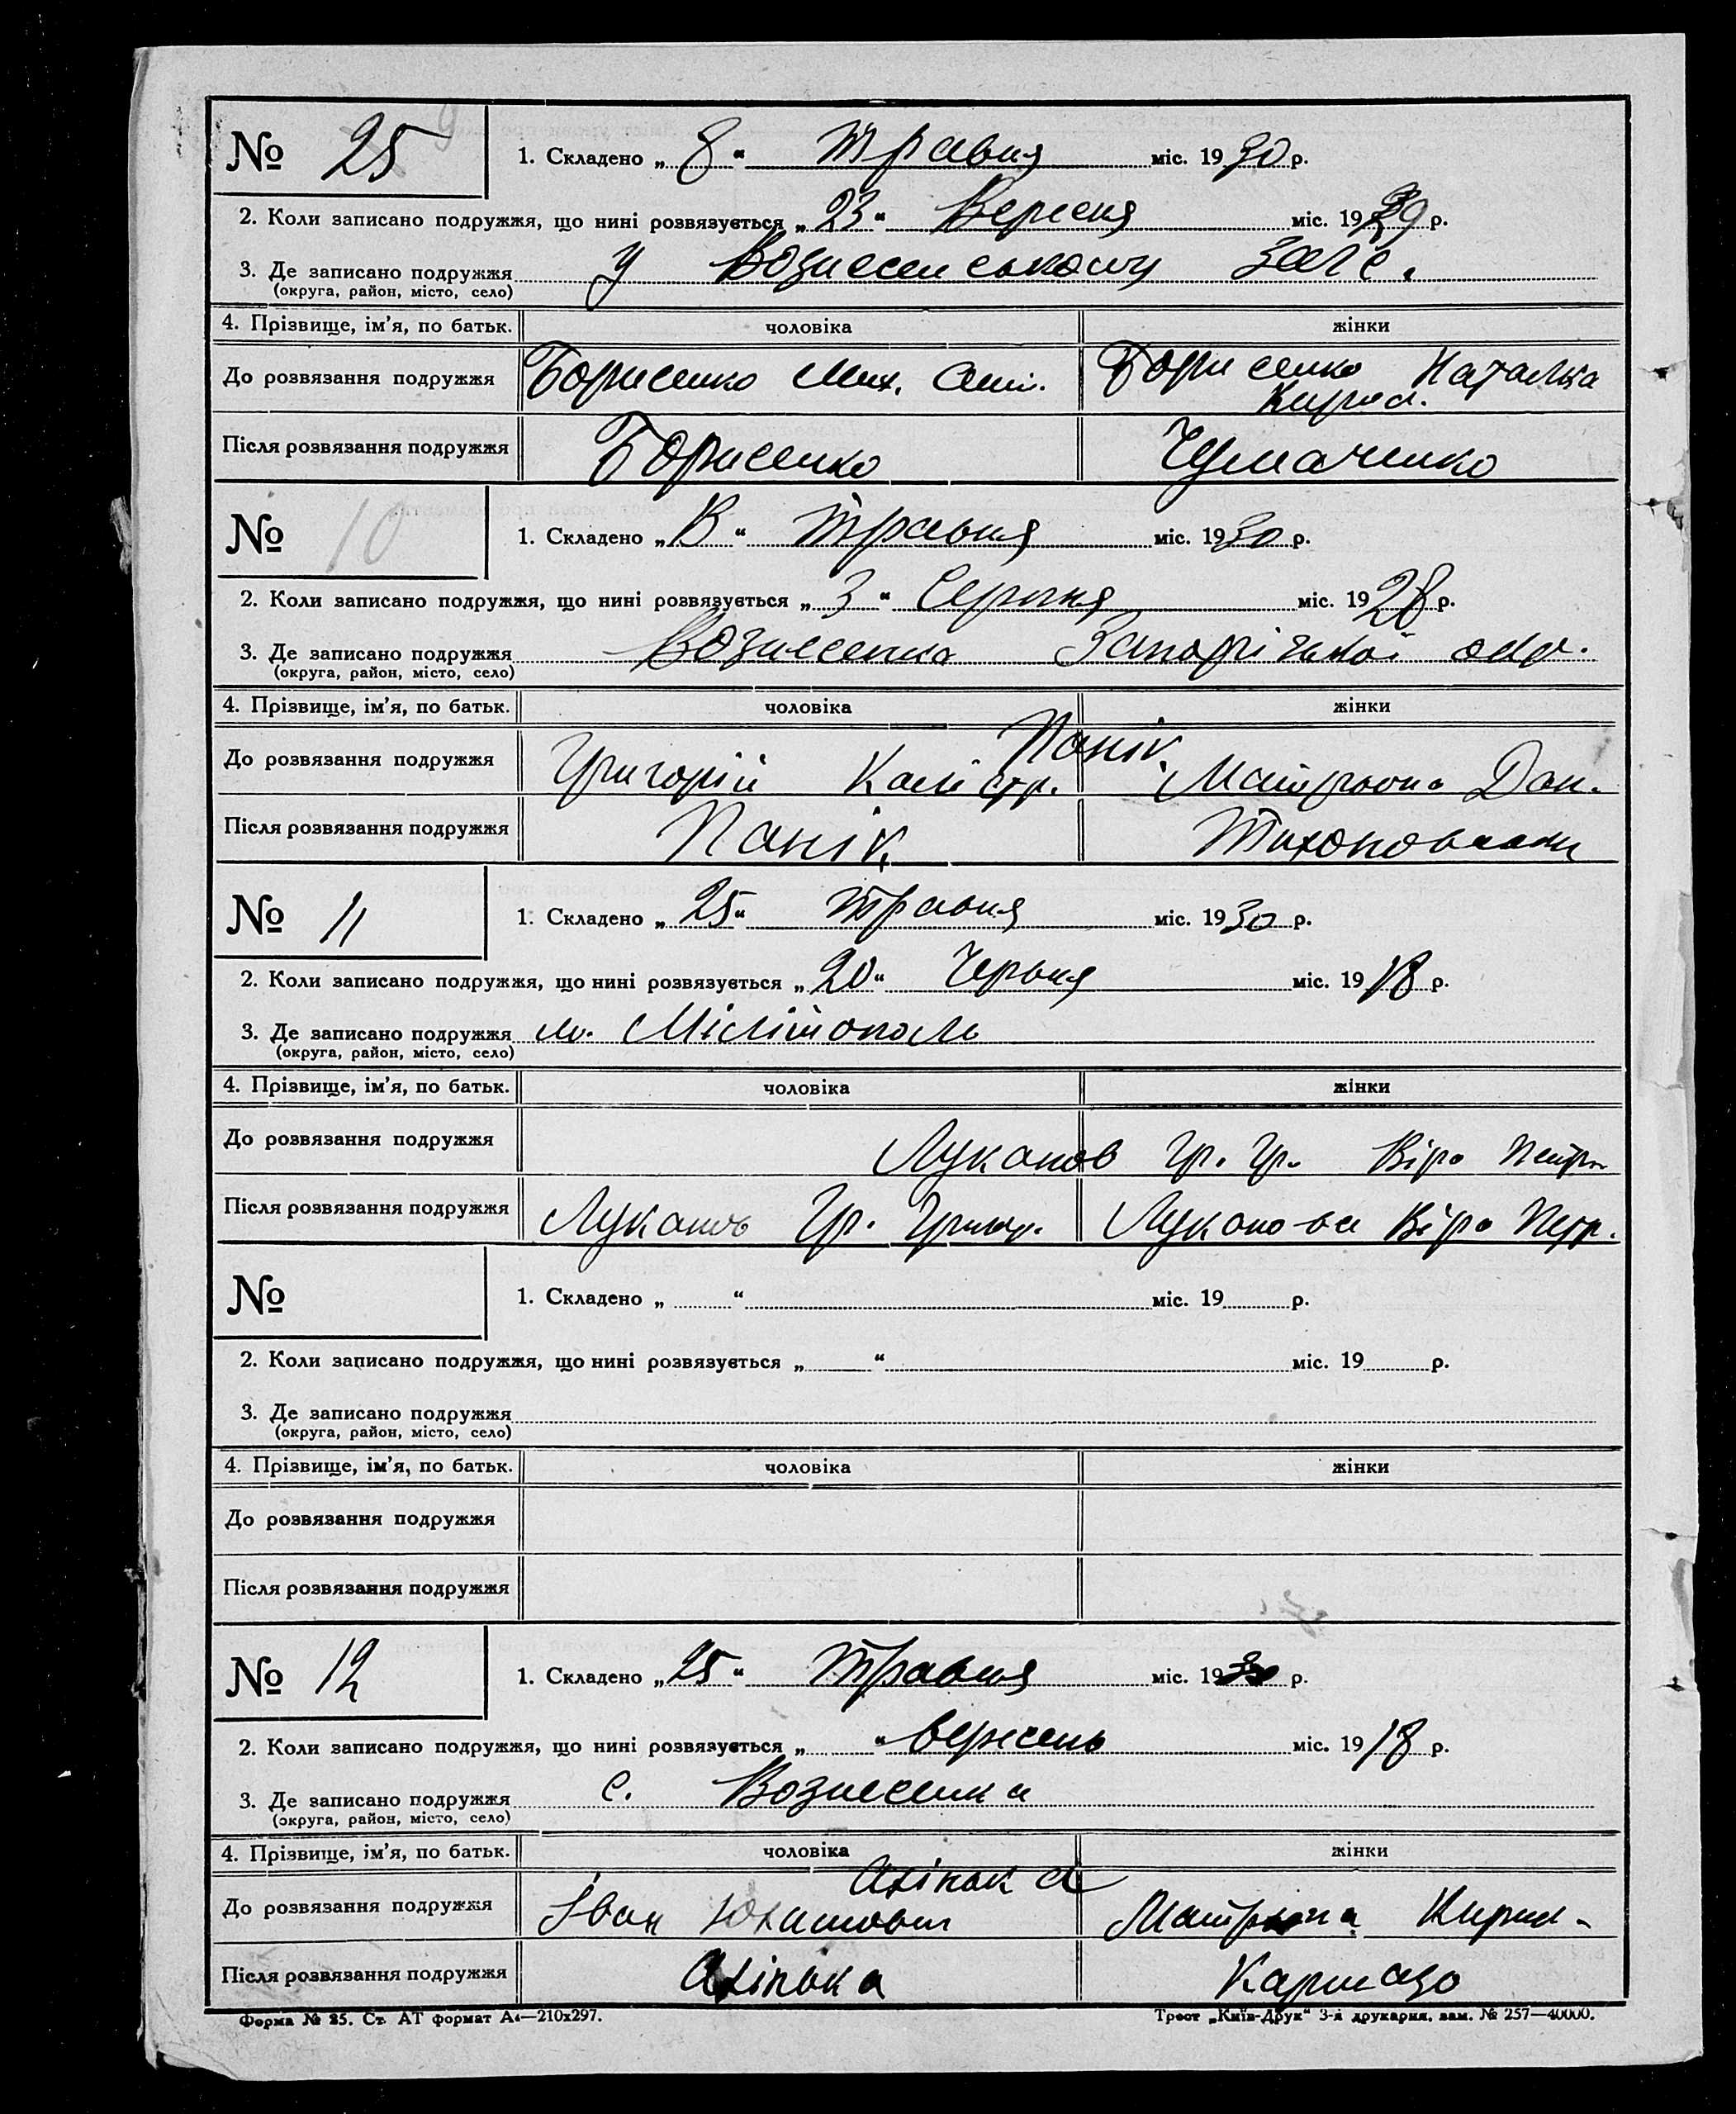 № 25
1. Складено „ 8 “ Травня міс. 1930 р.
2. Коли записано подружжя, що нині розвязується „ 23 “ Вересня міс. 1929 р.
3. Де записано подружжя у Вознесенському ЗАГС.
(округа, район, місто, село)
4. Прізвище, ім’я, по батьк. чоловіка жінки
До розвязання подружжя Борисенко Мих. Борисенко Наталка
Кирил.
Після розвязання подружжя Борисенко Чумаченко
№ 10
1. Складено „ “ Травня міс. 1930 р.
2. Коли записано подружжя, що нині розвязується „ 3 “ Серпня міс. 1928 р.
3. Де записано подружжя Вознесенка Запоріжької окр.
(округа, район, місто, село)
4. Прізвище, ім’я, по батьк. чоловіка жінки
Панік
До розвязання подружжя Григорій Калістр. Матрьона Дан.
Після розвязання подружжя Панік
№ 11
1. Складено „ 25 “ Травня міс. 1930 р.
2. Коли записано подружжя, що нині розвязується „ 20 “ Червня міс. 1918 р.
3. Де записано подружжя м. Мілітополь
(округа, район, місто, село)
4. Прізвище, ім’я, по батьк. чоловіка жінки
До розвязання подружжя Луканов Гр. Гр. Віра Петр.
Після розвязання подружжя Луканов Гр. Григор. Луканова Віра Петр.
№
1. Складено „ “ міс. 19 р.
2. Коли записано подружжя, що нині розвязується „ “ міс. 19 р.
3. Де записано подружжя
(округа, район, місто, село)
4. Прізвище, ім’я, по батьк. чоловіка жінки
До розвязання подружжя
Після розвязання подружжя
№ 12
1. Складено „ 25 “ Травня міс. 1930 р.
2. Коли записано подружжя, що нині розвязується „ “ вересень міс. 1918 р.
3. Де записано подружжя с. Вознесенка
(округа, район, місто, село)
4. Прізвище, ім’я, по батьк. чоловіка жінки
До розвязання подружжя Іван Юхимович Матрьона Кирил.
Після розвязання подружжя
Форма № 25. Ст. АТ формат А4—210х297. Трест „Київ-Друк“ 3-я друкарня, зам. № 257—40000.